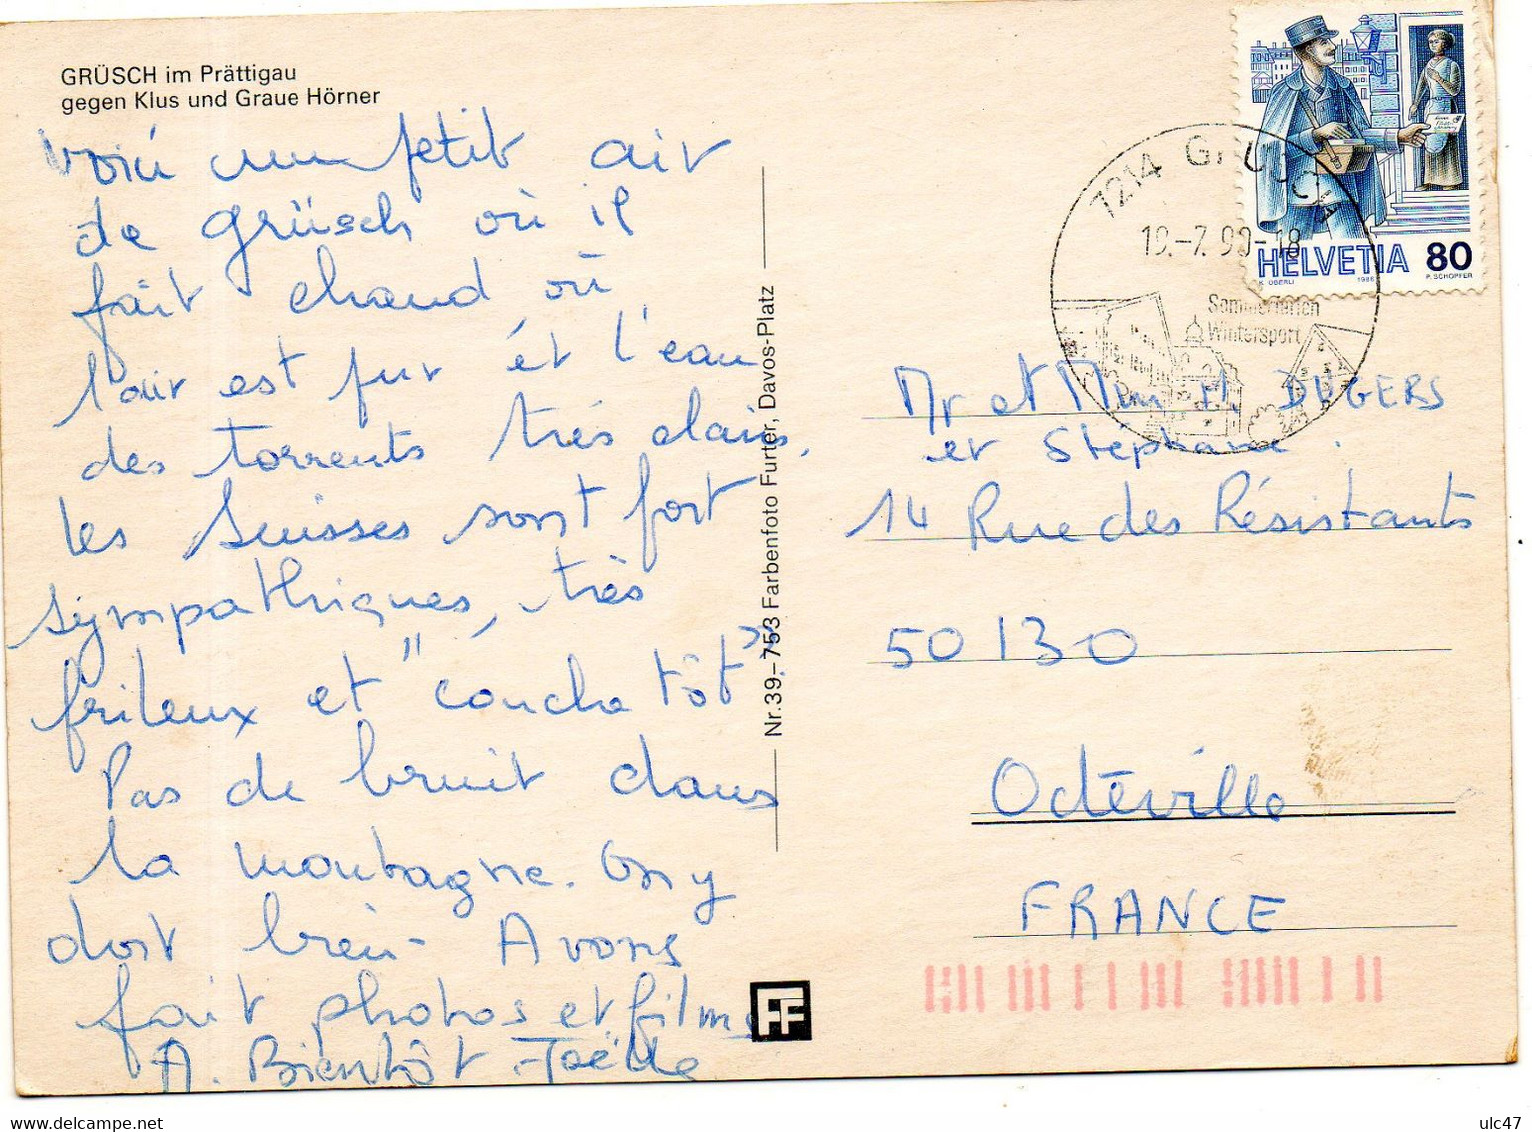 GRÜSCH im Prättigau
gegen Klus und Graue Hörner
Voici un petit air
de Grüsch où il
fait chaud où
l'air est pur et l'eau
des torrents très clairs,
les Suisses sont fort
sympathiques, très
frileux et "couche tôt"
Pas de bruit dans
la montagne. On y
dort bien - Avons
fait photos et films
A. Bientôt Joëlle
Nr. 39.-753 Farbenfoto Furter, Davos-Platz
FF
HELVETIA 80
K. OBERLI 1986 P. SCHOPFER
7214 GRÜSCH
19.-7.90-18
Sommerferien
Wintersport
Mr et Mme H. DUGERS
et Stephane.
14 Rue des Résistants
50130
Octeville
FRANCE
delcampe.net
ulc47